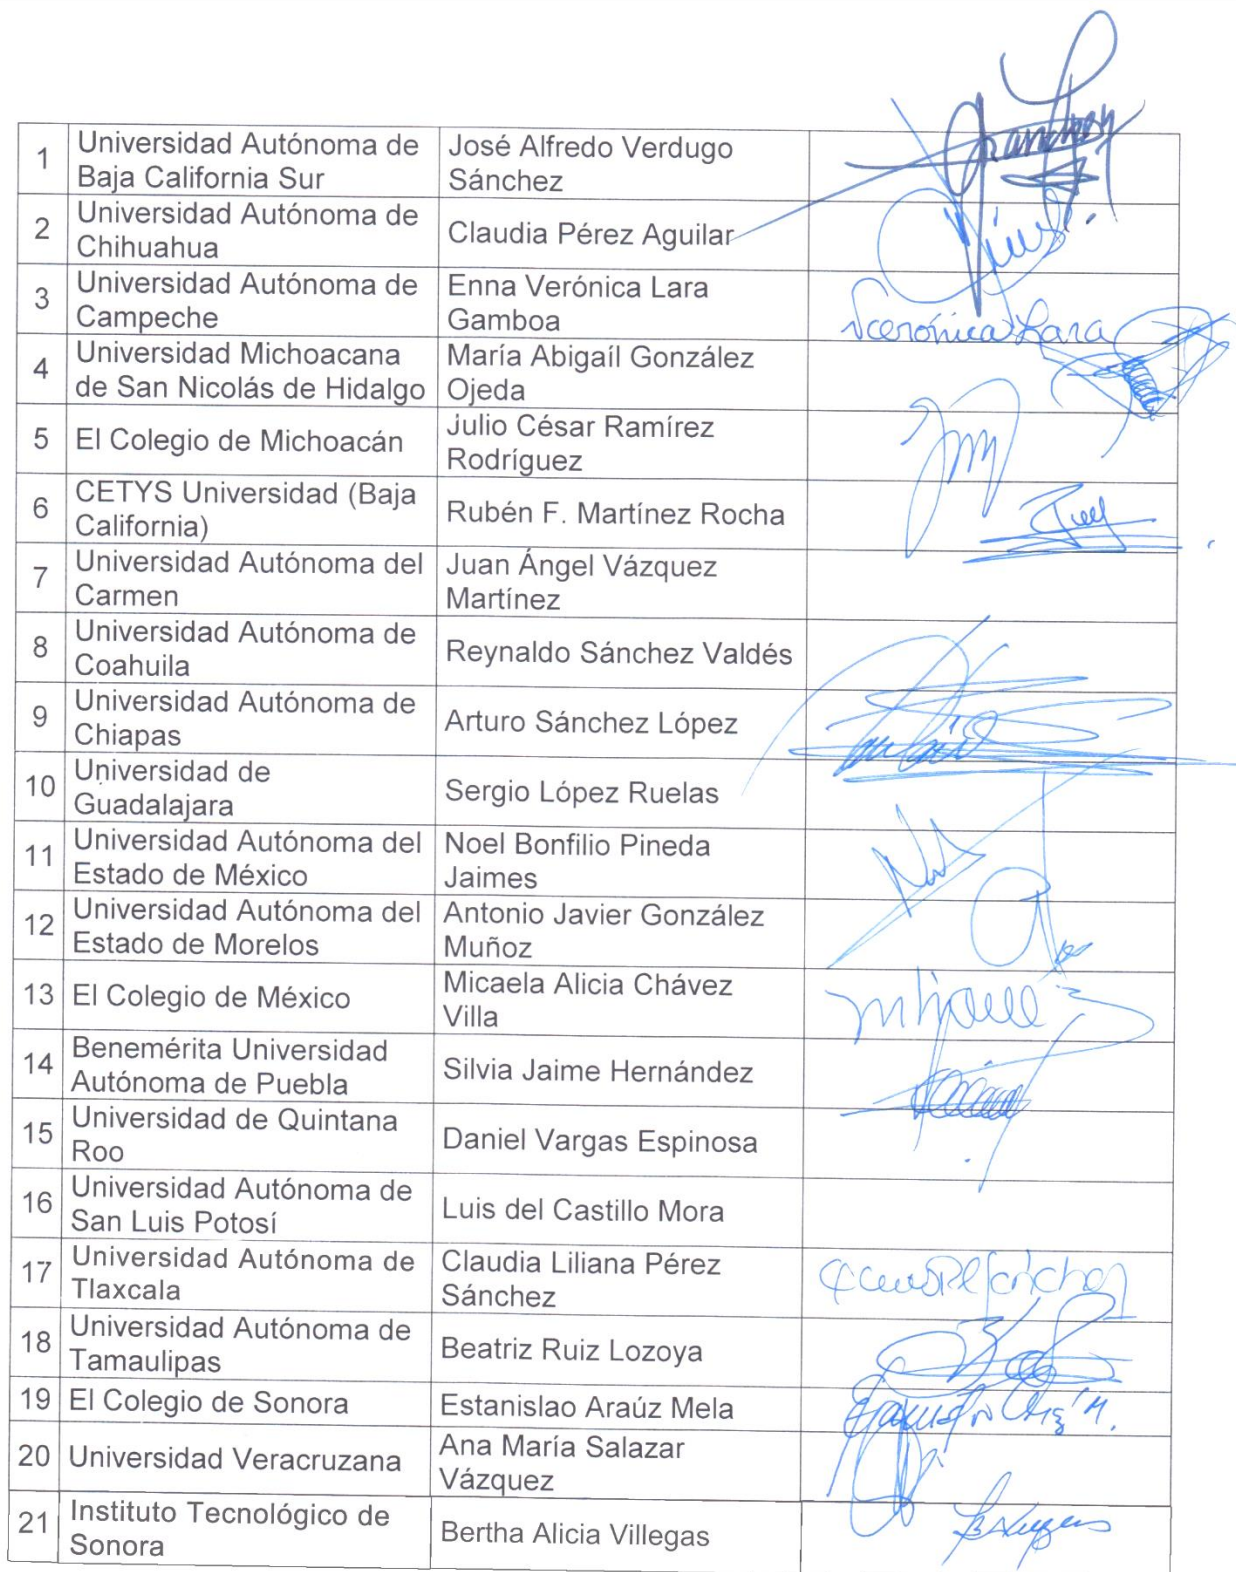 1 Universidad Autónoma de Baja California Sur José Alfredo Verdugo Sánchez
2 Universidad Autónoma de Chihuahua Claudia Pérez Aguilar
3 Universidad Autónoma de Campeche Enna Verónica Lara Gamboa Verónica Lara
4 Universidad Michoacana de San Nicolás de Hidalgo María Abigaíl González Ojeda
5 El Colegio de Michoacán Julio César Ramírez Rodríguez
6 CETYS Universidad (Baja California) Rubén F. Martínez Rocha
7 Universidad Autónoma del Carmen Juan Ángel Vázquez Martínez
8 Universidad Autónoma de Coahuila Reynaldo Sánchez Valdés
9 Universidad Autónoma de Chiapas Arturo Sánchez López
10 Universidad de Guadalajara Sergio López Ruelas
11 Universidad Autónoma del Estado de México Noel Bonfilio Pineda Jaimes
12 Universidad Autónoma del Estado de Morelos Antonio Javier González Muñoz
13 El Colegio de México Micaela Alicia Chávez Villa
14 Benemérita Universidad Autónoma de Puebla Silvia Jaime Hernández
15 Universidad de Quintana Roo Daniel Vargas Espinosa
16 Universidad Autónoma de San Luis Potosí Luis del Castillo Mora
17 Universidad Autónoma de Tlaxcala Claudia Liliana Pérez Sánchez
18 Universidad Autónoma de Tamaulipas Beatriz Ruiz Lozoya
19 El Colegio de Sonora Estanislao Araúz Mela
20 Universidad Veracruzana Ana María Salazar Vázquez
21 Instituto Tecnológico de Sonora Bertha Alicia Villegas